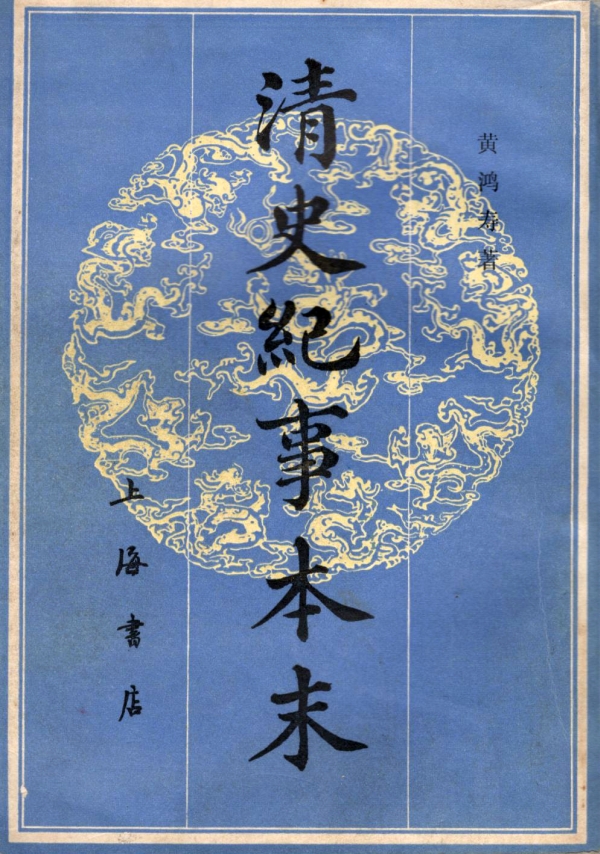 黄鸿寿著
清史紀事本末
上海书店